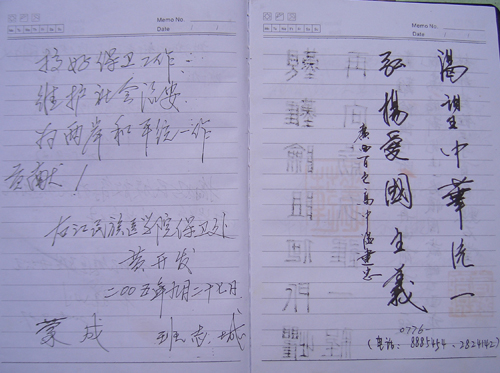 Memo No.
Date
搞好保卫工作
维护社会治安
为两岸和平统一作
贡献!
右江民族医学院保卫处
黄开发
二00五年九月二十七日
蒙成
班志城
Memo No.
Date
渴望中華统一
弘揚愛國主義
0776-
(電话: 8885454.2824142)